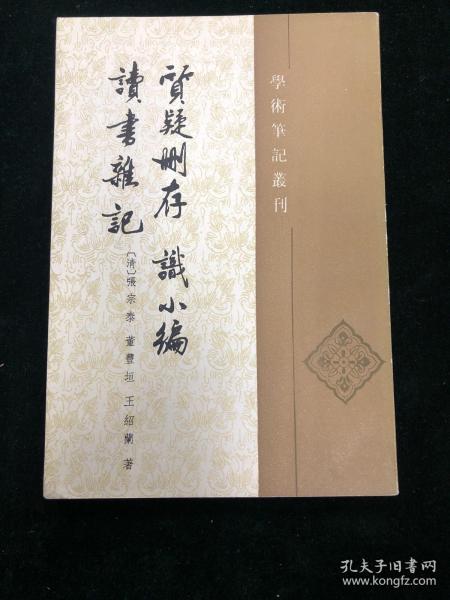 學術筆記叢刊
質疑刪存 識小編
讀書雜記
〔清〕張宗泰 董豐垣 王紹蘭 著
孔夫子旧书网
www.kongfz.com